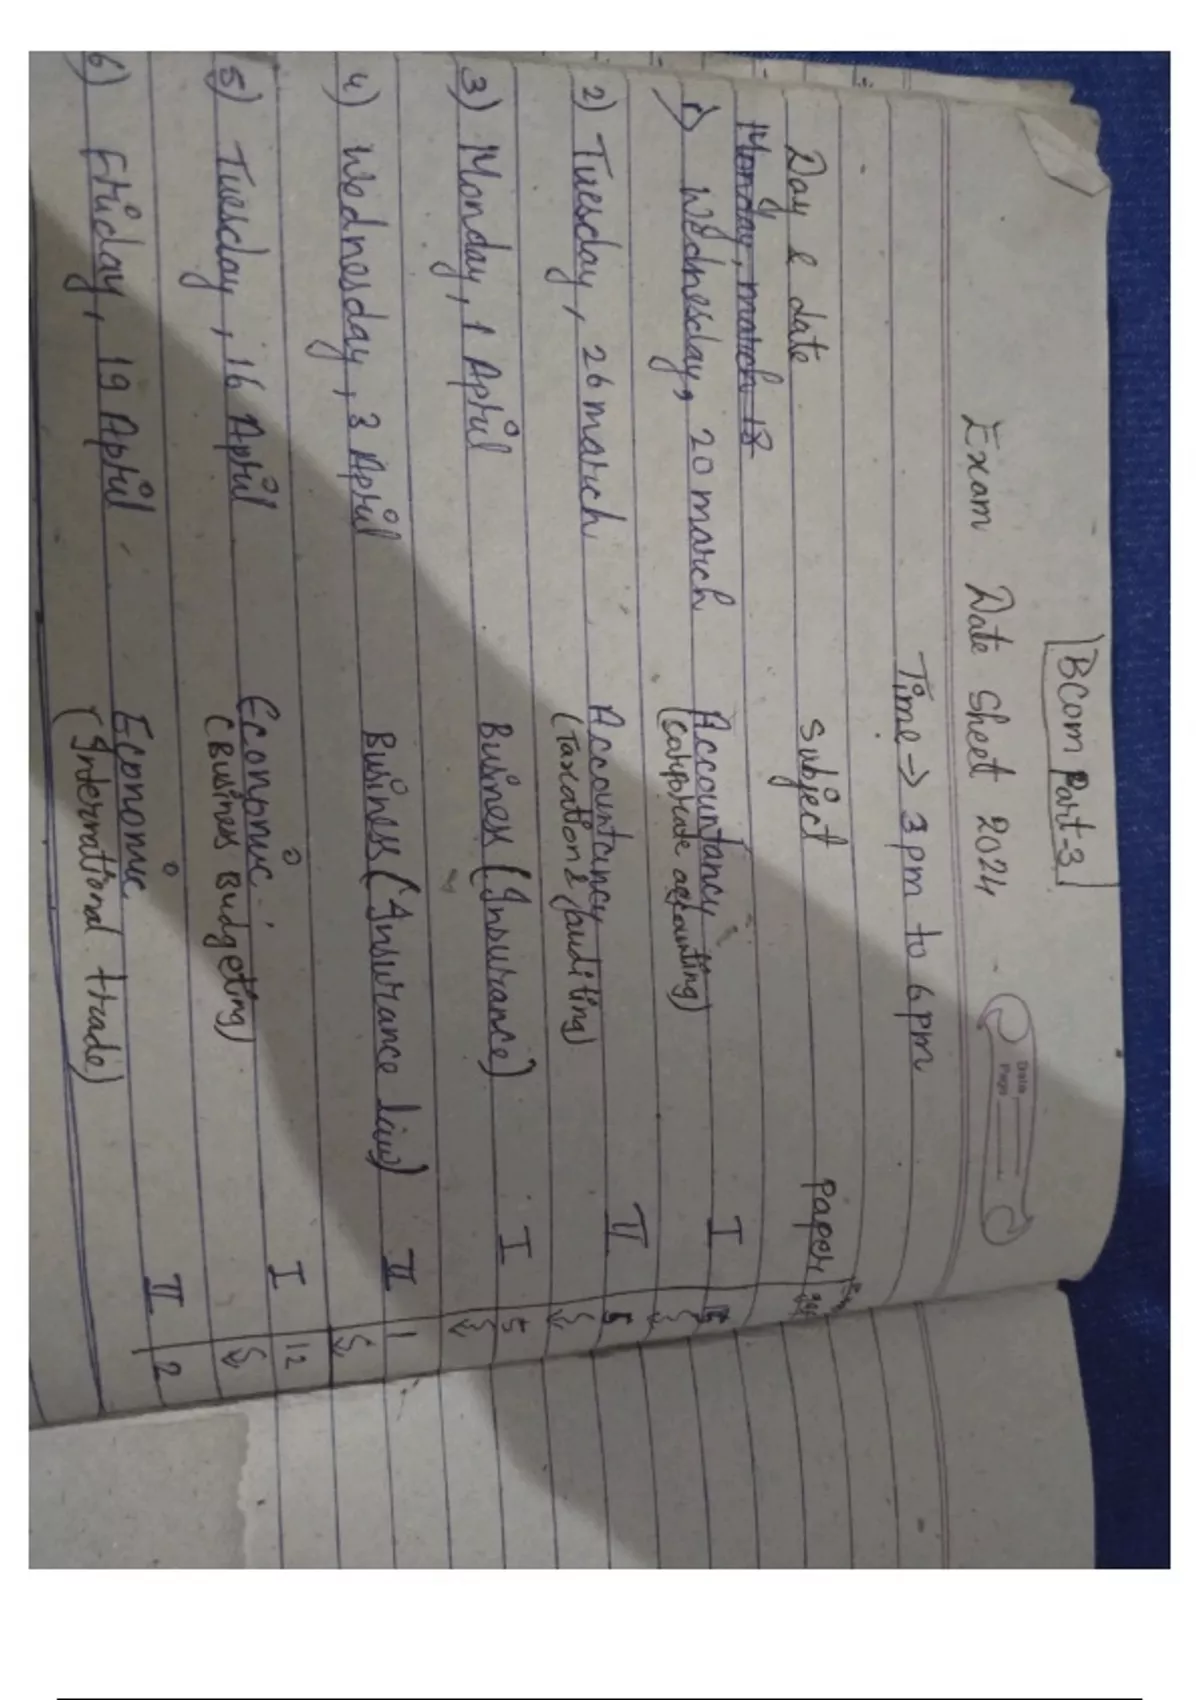 BCom Part-3
Exam Date Sheet 2024
Date
Page
Time → 3 pm to 6 pm
Day & date Subject Paper
Monday, march 18
1) Wednesday, 20 march Accountancy I
(Corporate accounting)
2) Tuesday, 26 march Accountancy II
(Taxation & auditing)
3) Monday, 1 April Business (Insurance) I 5
4) Wednesday, 3 April Business (Insurance law) II 1
5) Tuesday, 16 April Economic I 12
(Business Budgeting)
6) Friday, 19 April Economic II 2
(International trade)